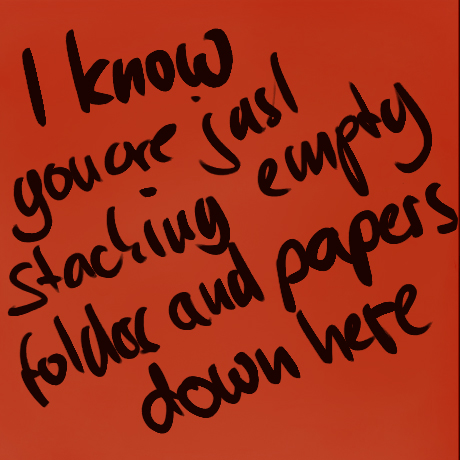 I know
you are just
stacking empty
folders and papers
down here